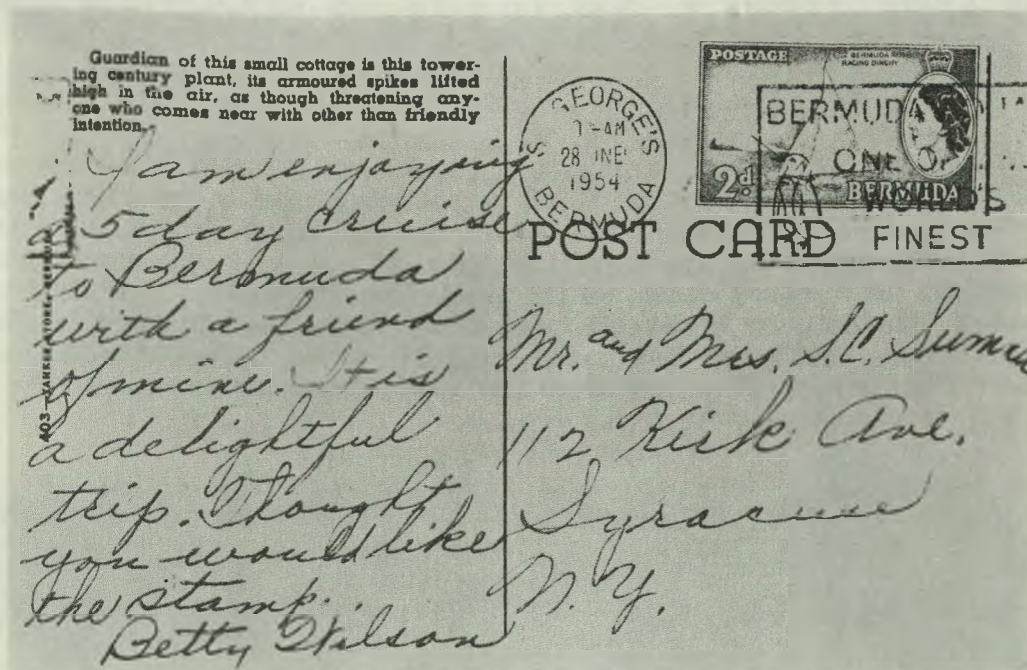 Guardian of this small cottage is this tower-
ing century plant, its armoured spikes lifted
high in the air, as though threatening any-
one who comes near with other than friendly
intention.
I am enjoying
5 day cruise
to Bermuda
with a friend
of mine. It is
a delightful
trip. Thought
you would like
the stamp.
Betty Wilson
403 YANKEE STORE, BERMUDA
ST GEORGE'S
AM
28 JNE
1954
BERMUDA
POSTAGE
BERMUDA
RACING DINGHY
2d.
BERMUDA
BERMUDA
ONE OF
WORLD'S
FINEST
POST CARD
Mr. and Mrs. S.C.
112 Kirk Ave.
Syracuse
N.Y.